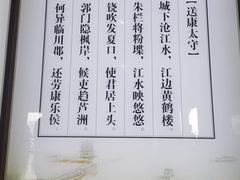 【送康太守】
城下沧江水，江边黄鹤楼。
朱栏将粉堞，江水映悠悠。
铙吹发夏口，使君居上头。
郭门隐枫岸，候吏趋芦洲。
何异临川郡，还劳康乐侯。